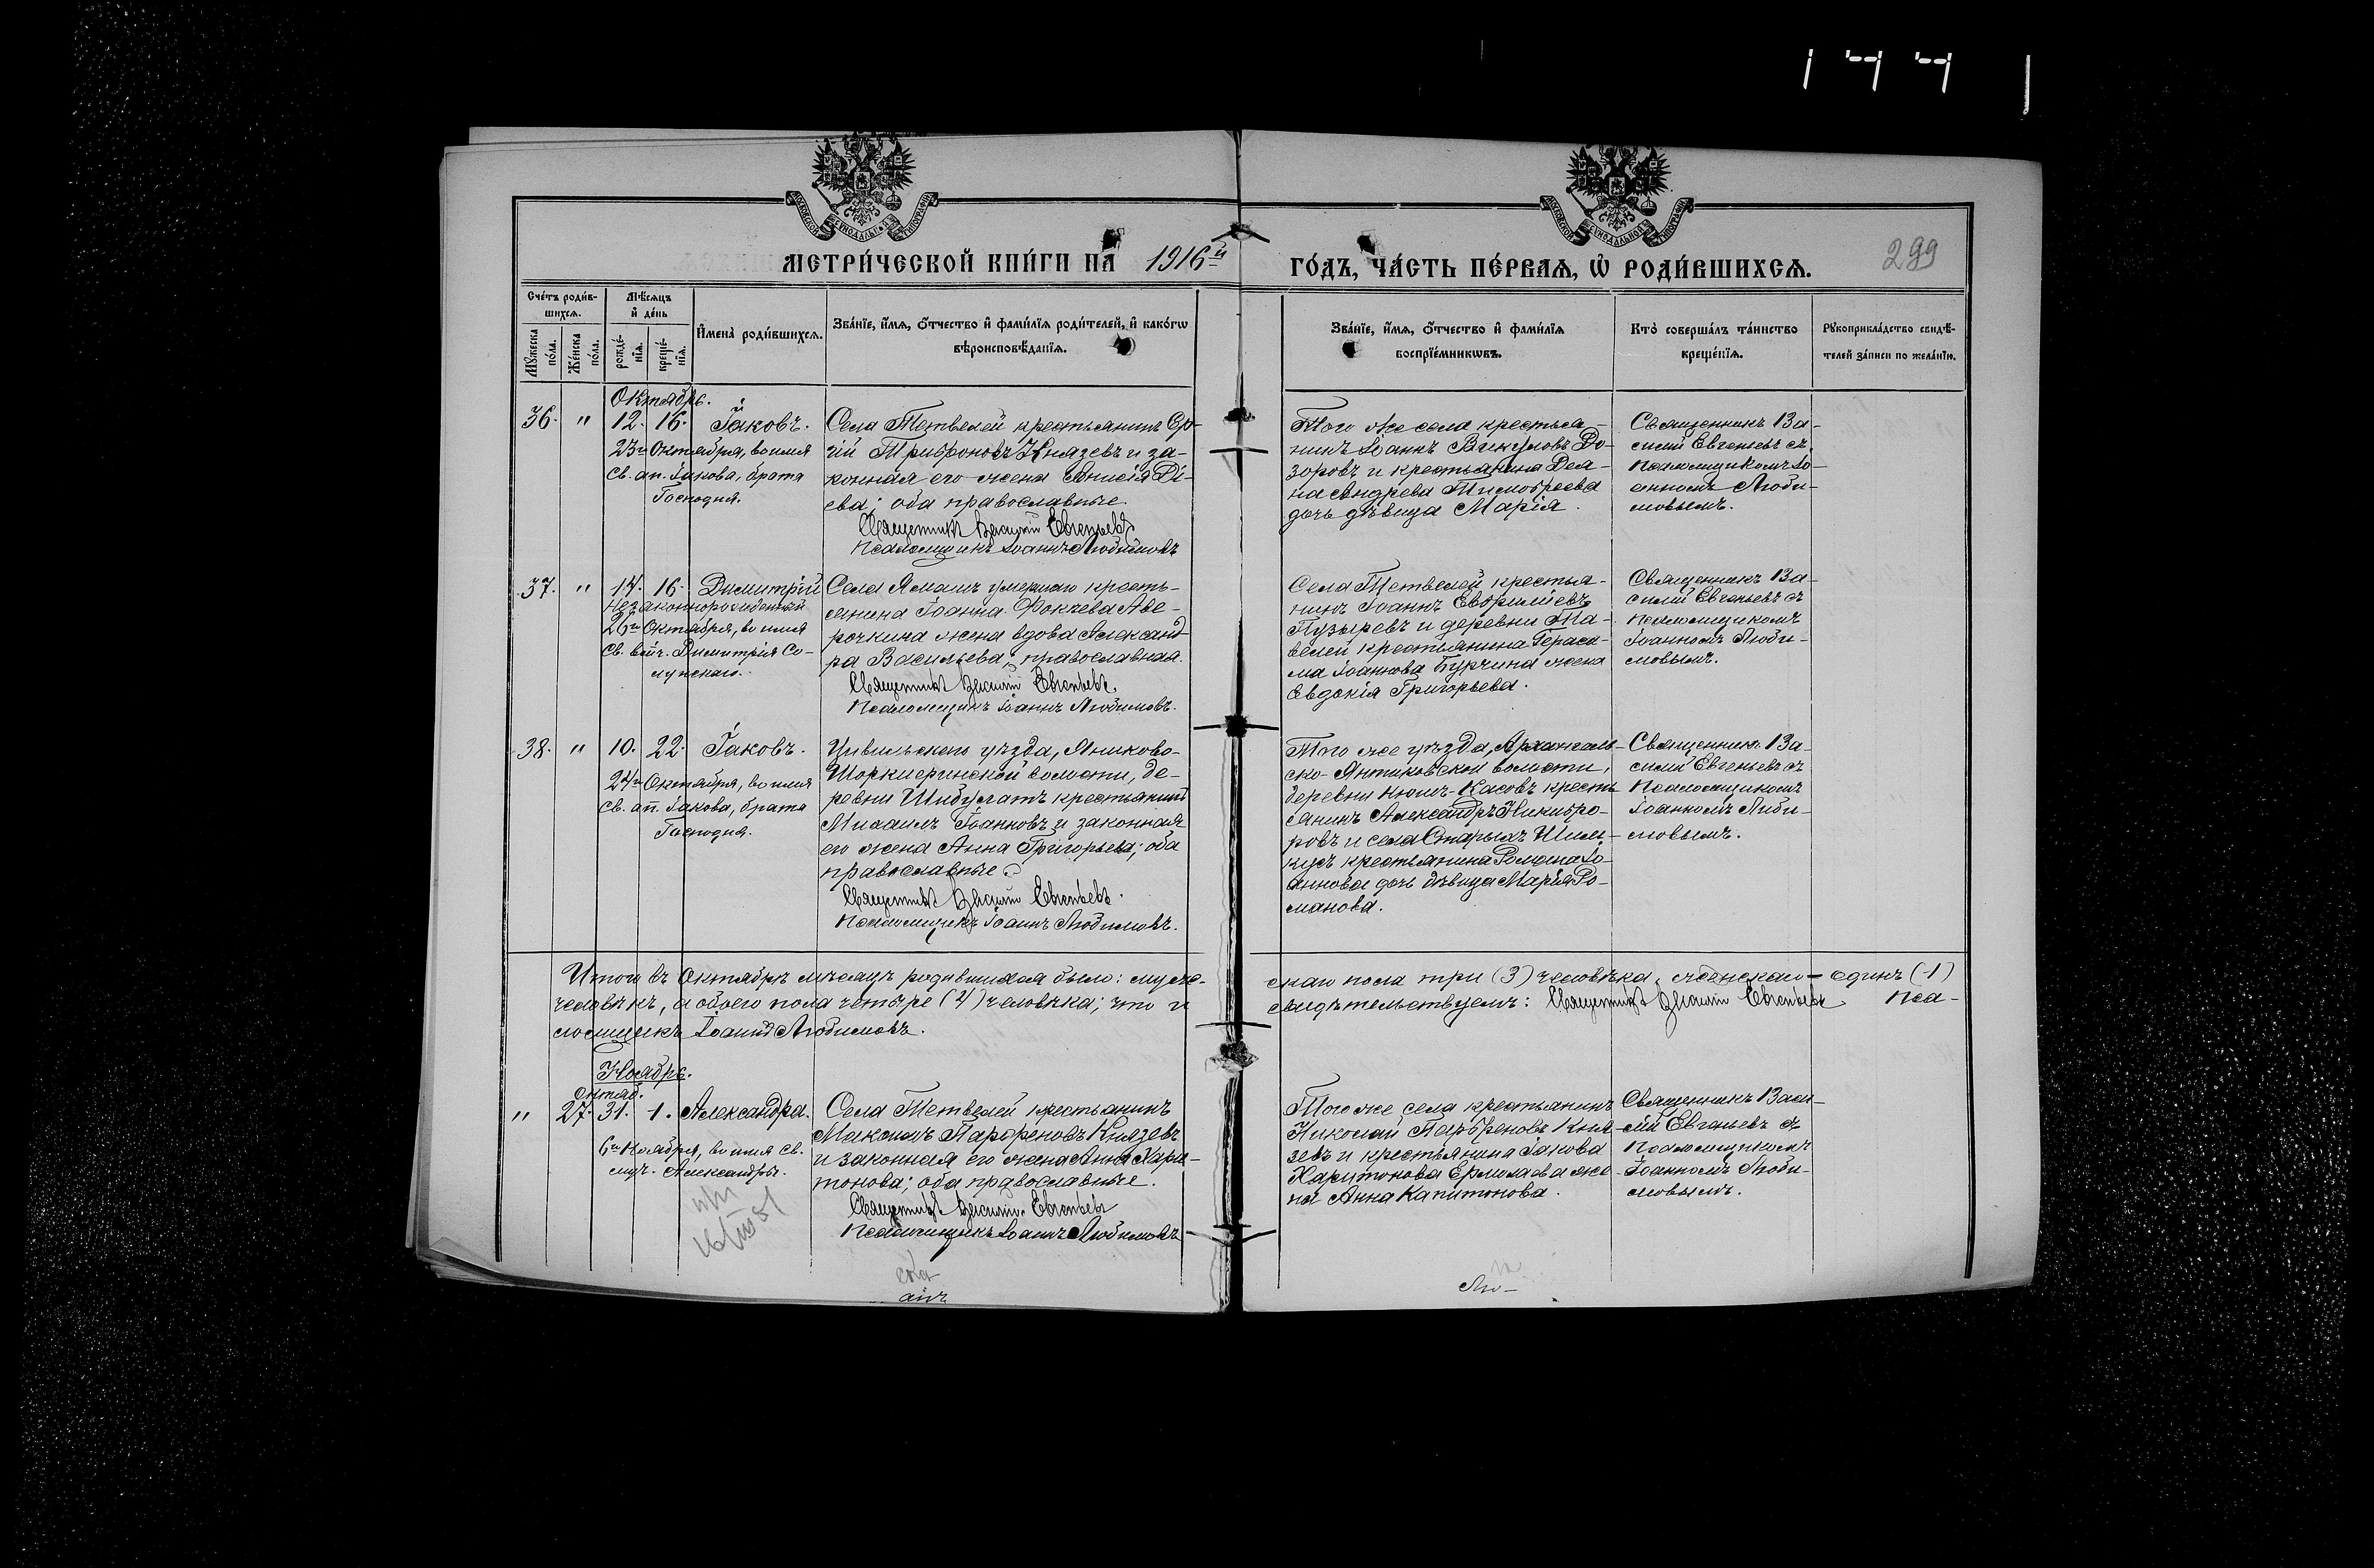 МЕТРИ́ЧЕСКОЙ КНИ́ГИ НА 1916й
ГО́ДЪ, ЧА́СТЬ ПЕ́РВАѦ, Ѡ҆ РОДИ́ВШИХСѦ.
299
Сче́тъ роди́в-
шихсѧ.
Мꙋ́жеска по́ла.
Же́нска по́ла.
Мѣ́сѧцъ
и҆ де́нь
рожде́-
нїѧ.
креще́-
нїѧ.
И҆мена̀ роди́вшихсѧ.
Зва́нїе, и҆́мѧ, ѻ҆́тчество и҆ фами́лїѧ роди́телей, и҆ како́гѡ
вѣроисповѣ́данїѧ.
Зва́нїе, и҆́мѧ, ѻ҆́тчество и҆ фами́лїѧ
воспрїе́мникѡвъ.
Кто̀ соверша́лъ та́инство
креще́нїѧ.
Рꙋкоприкла́дство свидѣ́-
телей за́писи по жела́нїю.
Октябрь.
36. " 12. 16. Іаковъ.
23го Октября, во имя
Св. ап. Іакова, брата
Господня.
Села Тетвелей крестьянинъ
Трифоновъ Князевъ и за-
конная его жена Анисія Ді-
ева; оба православные.
Священникъ Василій Евгеньевъ
Псаломщикъ Іоаннъ Любимовъ
Того же села крестья-
нинъ Іоаннъ Викуловъ До-
зоровъ и крестьянина Дея-
на Андреева Тимофеева
дочь дѣвица Марія.
Священникъ Ва-
силій Евгеньевъ съ
Псаломщикомъ Іо-
анномъ Люби-
мовымъ.
37. " 14. 16. Димитрій
Незаконнорожденный
26го Октября, во имя
Св. вмч. Димитрія Со-
лунскаго.
Села Ямашъ умершаго кресть-
янина Іоанна Фокеева Аве-
рочкина жена вдова Александ-
ра Васильева; православная.
Священникъ Василій Евгеньевъ.
Псаломщикъ Іоаннъ Любимовъ.
Села Тетвелей крестья-
нинъ Іоаннъ Евфиміевъ
Пузыревъ и деревни Та-
велей крестьянина Гераси-
ма Іоаннова Бурчина жена
Евдокія Григорьева.
Священникъ Ва-
силій Евгеньевъ съ
Псаломщикомъ
Іоанномъ Люби-
мовымъ.
38. " 10. 22. Іаковъ.
24го Октября, во имя
Св. ап. Іакова, брата
Господня.
Цивильскаго уѣзда, Яниково-
Шоркистринской волости, де-
ревни Шибулатъ крестьянинъ
Михаилъ Іоанновъ и законная
его жена Анна Григорьева; оба
православные
Священникъ Василій Евгеньевъ.
Псаломщикъ Іоаннъ Любимовъ.
Того же уѣзда, Архангель-
ско-Янтиковской волости,
деревни Нюшъ-Касовъ кресть-
янинъ Александръ Никифо-
ровъ и села Старыхъ Шиль-
кусъ крестьянина Романа Іо-
аннова дочь дѣвица Марія Ро-
манова.
Священникъ Ва-
силій Евгеньевъ съ
Псаломщикомъ
Іоанномъ Люби-
мовымъ.
Итого въ Октябрѣ мѣсяцѣ родившихся было: муже-
скаго пола три (3) человѣка, женскаго — одинъ (1)
человѣкъ, а обоего пола четыре (4) человѣка; что и
свидѣтельствуемъ: Священникъ Василій Евгеньевъ Пса-
ломщикъ Іоаннъ Любимовъ.
Ноябрь.
Октяб.
" 27. 31. 1. Александра.
6го Ноября, во имя Св.
мц. Александры.
Села Тетвелей крестьянинъ
Максимъ Парфеновъ Князевъ
и законная его жена Анна Хари-
тонова; оба православные.
Священникъ Василій Евгеньевъ
Псаломщикъ Іоаннъ Любимовъ
Того же села крестьянинъ
Николай Парфеновъ Кня-
зевъ и крестьянина Іакова
Харитонова Ермолаева же-
на Анна Капитонова.
Священникъ Васи-
лій Евгеньевъ съ
Псаломщикомъ
Іоанномъ Люби-
мовымъ.